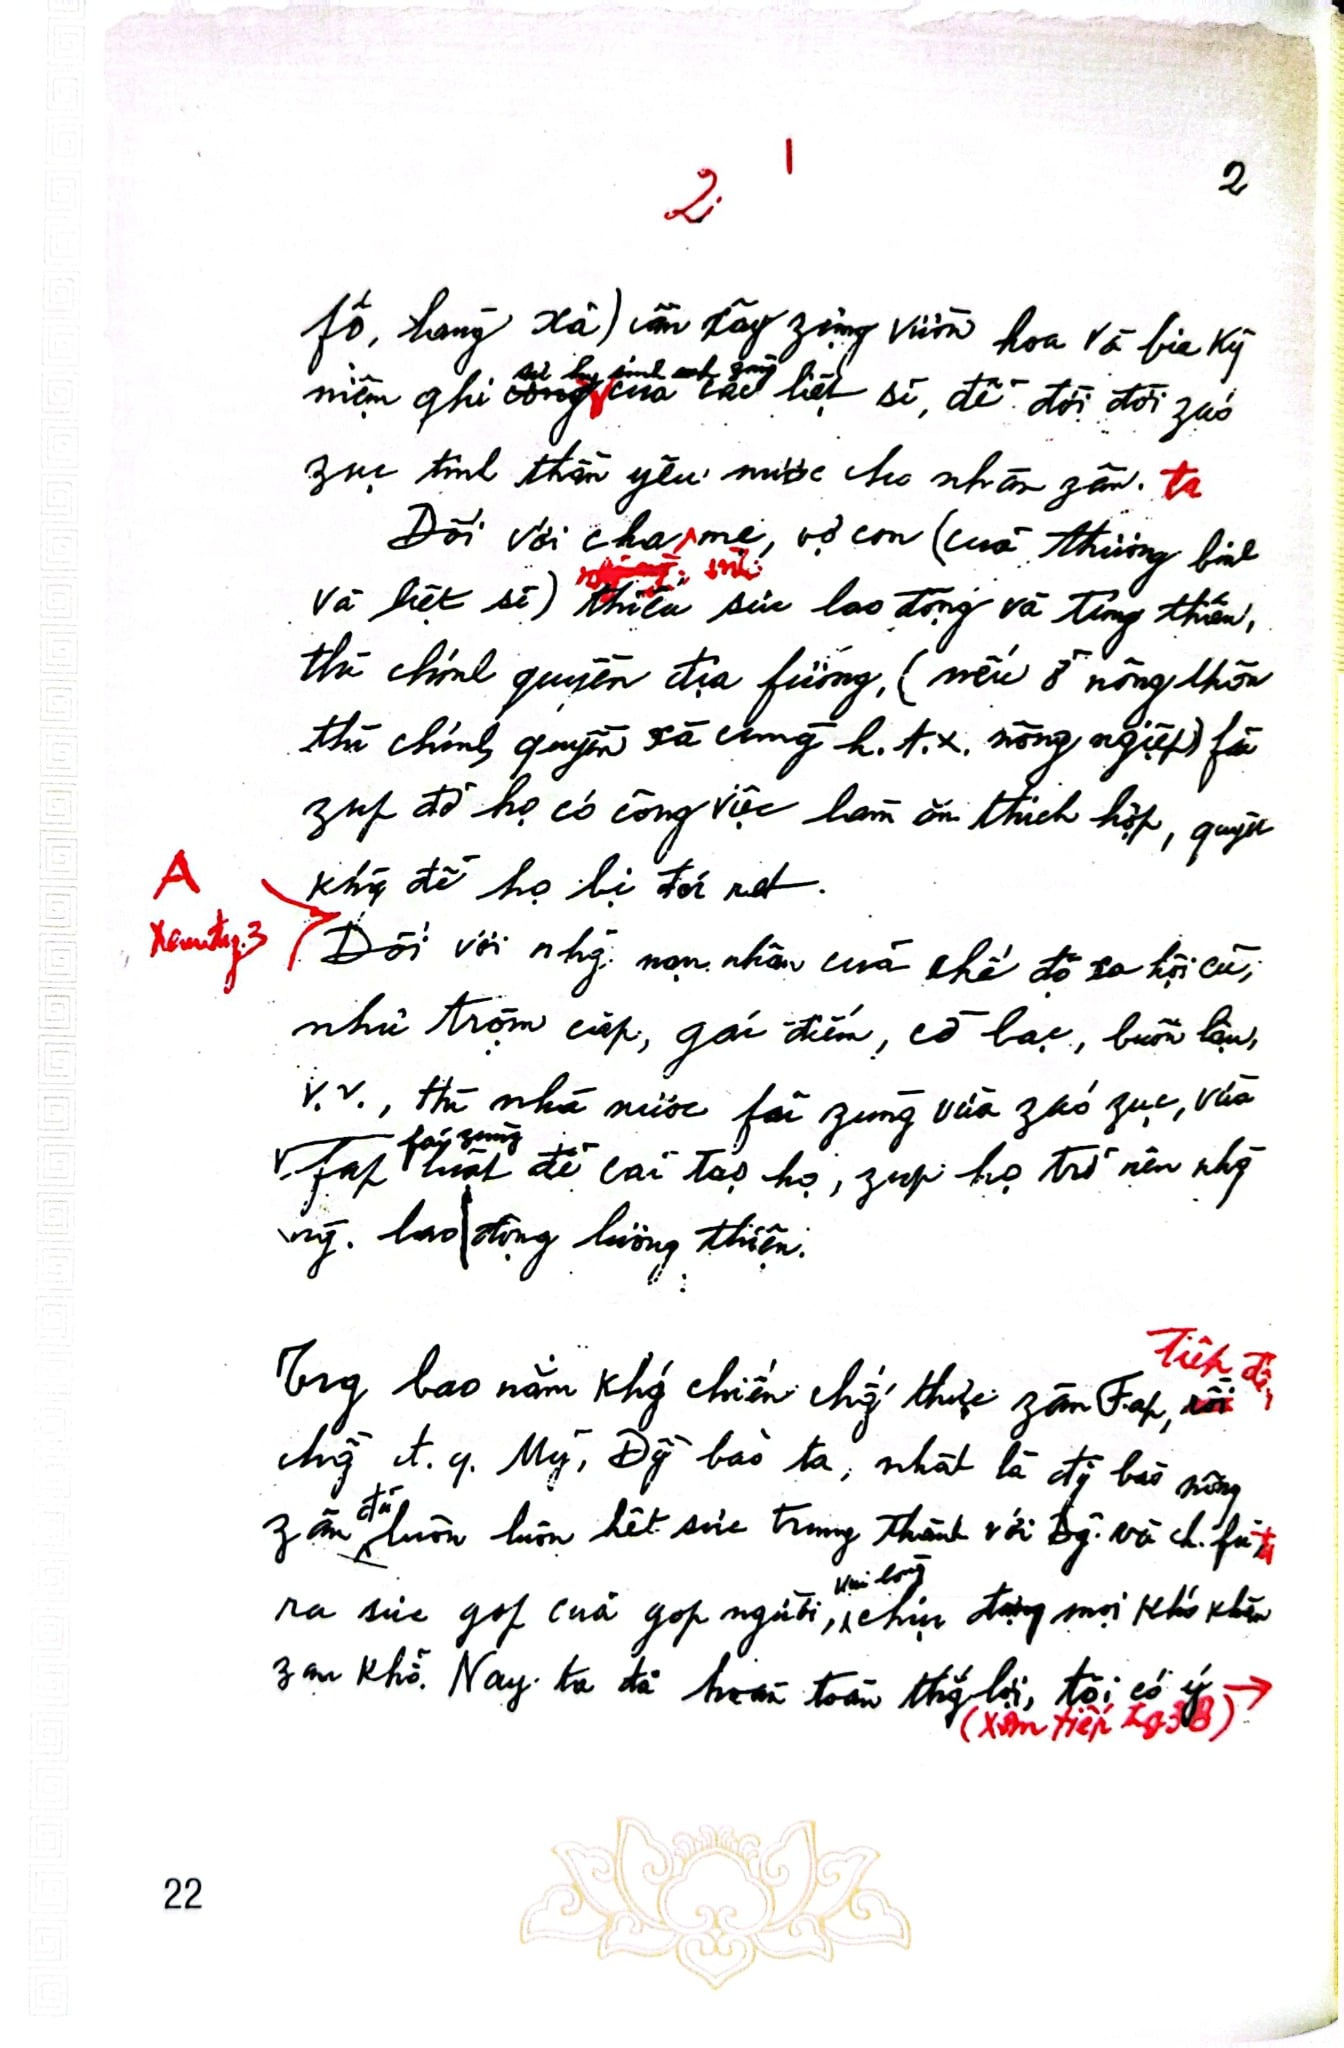 2
1
2
fố, làng xã) cần xây zựng vườn hoa và bia kỷ
sự hy sinh anh zũng
niệm ghi công của các liệt sĩ, để đời đời záo
zục tinh thần yêu nước cho nhân zân. ta
Đối với cha mẹ, vợ con (của thương binh
và liệt sĩ) thiếu sức lao động và túng thiếu,
thì chính quyền địa fương, (nếu ở nông thôn
thì chính quyền xã cùng h.t.x. nông ngiệp) fải
zúp đỡ họ có công việc làm ăn thích hợp, quyết
khg để họ bị đói rét.
A
Xem trg.3
Đối với nhg nạn nhân của chế độ xã hội cũ,
như trộm cắp, gái điếm, cờ bạc, buôn lậu,
v.v., thì nhà nước fải zùng vừa záo zục, vừa
fải zùng
fáp luật để cải tạo họ, zúp họ trở nên nhg
ng. lao động lương thiện.
Tiếp đó,
Trg bao năm khg chiến chg thực zân Fáp, rồi
chg đ.q. Mỹ, Đg bào ta, nhất là đg bào nông
zân đã luôn luôn hết sức trung thành với Đg và ch. fủ ta
vui lòng
ra sức góp của góp người, chịu đựng mọi khó khăn
zan khổ. Nay ta đã hoàn toàn thg lợi, tôi có ý →
(Xem tiếp trg 3 B)
22